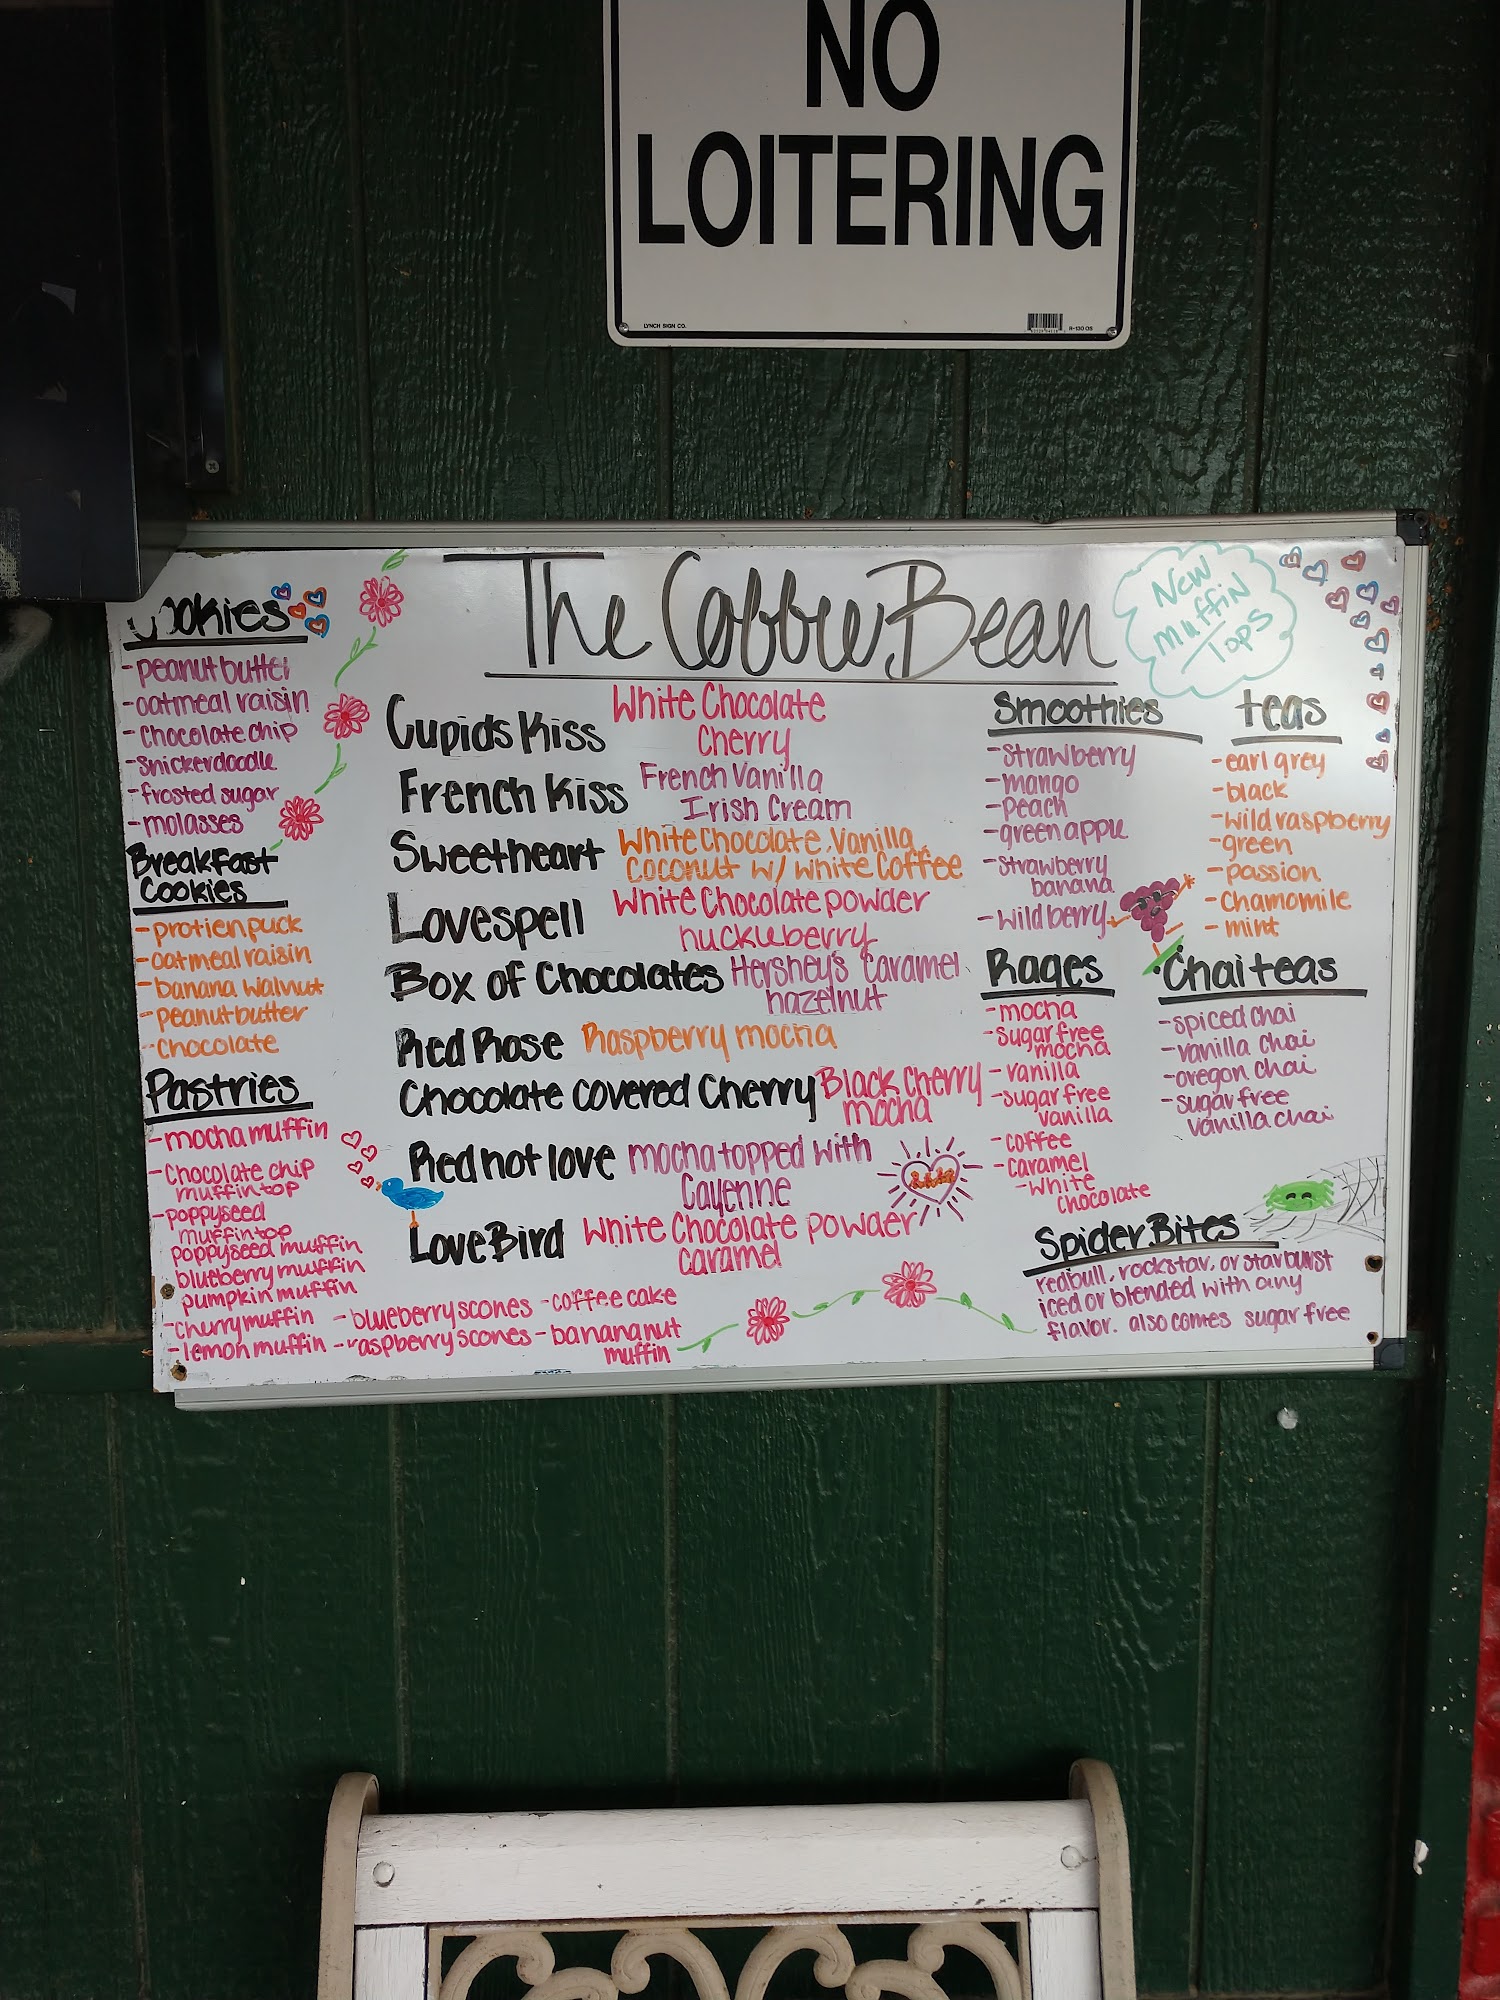 NO
LOITERING
LYNCH SIGN CO.
R-130 OS
The Coffee Bean
New
Muffin
Tops
Cookies
-peanut butter
-oatmeal raisin
-chocolate chip
-snickerdoodle
-frosted sugar
-molasses
Breakfast
Cookies
-protien puck
-oatmeal raisin
-banana walnut
-peanut butter
-chocolate
Pastries
-mocha muffin
-chocolate chip
muffin top
-poppyseed
muffin top
poppyseed muffin
blueberry muffin
pumpkin muffin
-cherry muffin
-lemon muffin
-blueberry scones
-raspberry scones
-coffee cake
-banana nut
muffin
Cupids Kiss White Chocolate
Cherry
French Kiss French Vanilla
Irish Cream
Sweetheart White Chocolate, Vanilla,
Coconut w/ White Coffee
Lovespell White Chocolate powder
huckleberry
Box of Chocolates Hershey's caramel
hazelnut
Red Rose Raspberry mocha
Chocolate Covered Cherry Black Cherry
mocha
Red hot love mocha topped with
Cayenne
Love Bird White Chocolate powder
caramel
Smoothies
-strawberry
-mango
-peach
-green apple
-strawberry
banana
-wildberry
teas
-earl grey
-black
-wild raspberry
-green
-passion
-chamomile
-mint
Rages
-mocha
-sugar free
mocha
-vanilla
-sugar free
vanilla
-coffee
-caramel
-white
chocolate
Chai teas
-spiced chai
-vanilla chai
-oregon chai
-sugar free
vanilla chai
Spider Bites
redbull, rockstar, or starburst
iced or blended with any
flavor. also comes sugar free